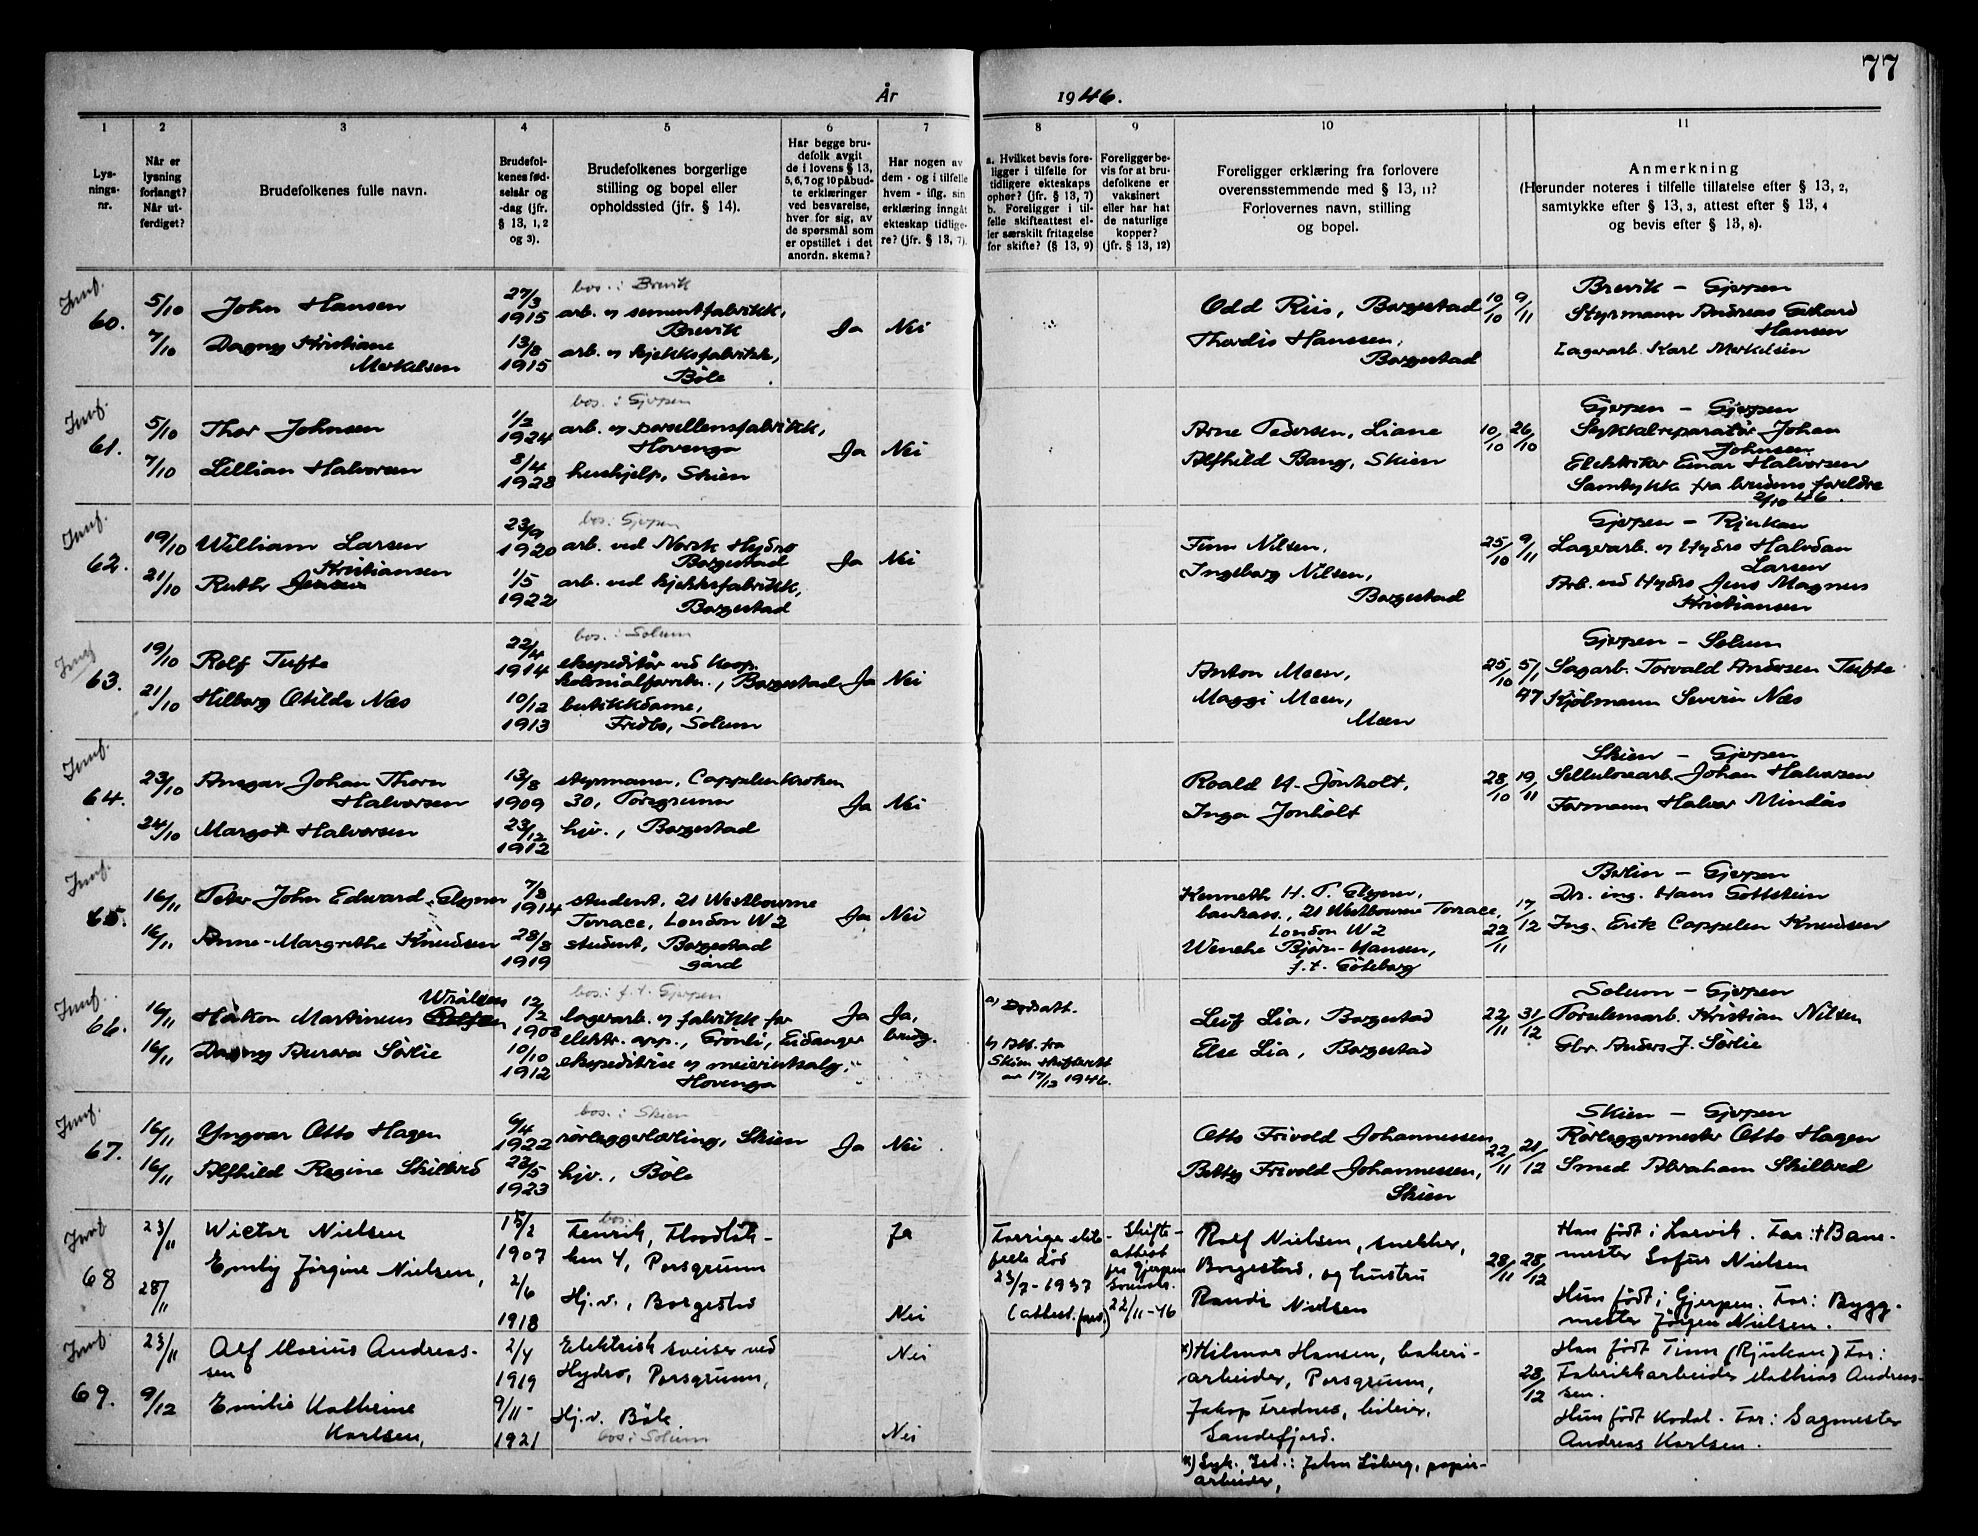 77
År 1946.
1 2 3 4 5 6 7 8 9 10 11
Lys-
nings-
nr.
Når er
lysning
forlangt?
Når ut-
ferdiget?
Brudefolkenes fulle navn.
Brudefol-
kenes fød-
selsår og
-dag (jfr.
§ 13, 1, 2
og 3).
Brudefolkenes borgerlige
stilling og bopel eller
opholdssted (jfr. § 14).
Har begge bru-
defolk avgit
de i lovens § 13,
5, 6, 7 og 10 påbud-
te erklæringer
ved besvarelse,
hver for sig, av
de spørsmål som
er opstillet i det
anordn. skema?
Har nogen av
dem - og i tilfelle
hvem - iflg. sin
erklæring inngåt
ekteskap tidlige-
re? (jfr. § 13, 7).
a. Hvilket bevis fore-
ligger i tilfelle for
tidligere ekteskaps
ophør? (jfr. § 13, 7)
b. Foreligger i til-
felle skifteattest el-
ler særskilt fritagelse
for skifte? (§ 13, 9)
Foreligger be-
vis for at bru-
defolkene er
vaksinert
eller har hat
de naturlige
kopper?
(jfr. § 13, 12)
Foreligger erklæring fra forlovere
overensstemmende med § 13, 11?
Forlovernes navn, stilling
og bopel.
Anmerkning
(Herunder noteres i tilfelle tillatelse efter § 13, 2,
samtykke efter § 13, 3, attest efter § 13, 4
og bevis efter § 13, 8).
Innf.
60.
5/10
7/10
John Hansen
Dagny Kristiane
Merkelsen
27/3
1915
13/8
1915
bos. i Brevik
arb. v sementfabrikk,
Brevik
arb. v kjekksfabrikk,
Böle
Ja Nei
Odd Riis, Borgestad
Thordis Hanssen,
Borgestad
10/10 9/11
Brevik - Gjerpen
Styrmann Andreas Gerhard
Hansen
Lagerarb. Karl Merkelsen
Innf.
61.
5/10
7/10
Thor Johnsen
Lillian Halvorsen
1/2
1924
8/4
1928
bos. i Gjerpen
arb. v porsellensfabrikk,
Hovenga
hushjelp, Skien
Ja Nei
Arne Pedersen, Liane
Alfhild Bang, Skien
10/10 26/10
Gjerpen - Gjerpen
Sykkelreparatör Johan
Johnsen
Elektriker Einar Halvorsen
Samtykke fra brudens foreldre
2/10 46.
Innf.
62.
19/10
21/10
William Larsen
Kristiansen
Ruth Jensen
23/9
1920
1/5
1922
bos. i Gjerpen
arb. ved Norsk Hydro
Borgestad
arb. ved kjekksfabrikk,
Borgestad
Ja Nei
Finn Nilsen,
Ingeborg Nilsen,
Borgestad
25/10 9/11
Gjerpen - Rjukan
Lagerarb. v Hydro Halvdan
Larsen
Arb. ved Hydro Jens Magnus
Kristiansen
Innf
63.
19/10
21/10
Rolf Tufte
Hilborg Otilde Næs
22/4
1914
10/12
1913
bos. i Solum
ekspeditör ved Koop.
kolonialforretn., Borgestad
butikkdame,
Fredbo, Solum
Ja Nei
Anton Meen,
Maggi Meen,
Meen
25/10 5/1
47
Gjerpen - Solum
Sagarb. Torvald Andersen Tufte
Kjöbmann Severin Næs
Innf.
64.
23/10
24/10
Ansgar Johan Thorn
Halvorsen
Margot Halvorsen
13/8
1909
23/12
1912
styrmann, Cappelenkroken
30, Porsgrunn
hjv., Borgestad
Ja Nei
Roald H. Jönholt,
Inga Jönholt
28/10 19/11
Skien - Gjerpen
Cellulosearb. Johan Halvorsen
Formann Halvor Mindås
Innf.
65.
16/11
16/11
Peter John Edward Glynn
Anne-Margrethe Knudsen
7/8
1914
28/8
1919
student, 21 Westbourne
Terrace, London W2
student, Borgestad
gård
Ja Nei
Kenneth H. P. Glynn,
bankass., 21 Westbourne Terrace,
London W2
Wenche Bjørn-Hansen,
f.t. Göteborg
22/11 17/12
Berlin - Gjerpen
Dr. ing. Hans Gottstein
Ing. Erik Cappelen Knudsen
Innf.
66.
16/11
16/11
Wrålsen
Håkon Martinius
Dagny Aurora Sörlie
12/2
1908
10/10
1912
bos. i f.t. Gjerpen
lagerarb. v fabrikk for
elektr. app., Grönli, Eidanger
ekspeditrise v meieriutsalg,
Hovenga
Ja Ja,
brudg.
a) Dødsatt.
b) Att. fra
Skien skifterett
av 17/12 1946.
Leif Lia, Borgestad
Else Lia, Borgestad
22/11 31/12
Solum - Gjerpen
Porselensarb. Kristian Nilsen
Gbr. Anders J. Sörlie
Innf.
67.
16/11
16/11
Yngvar Otto Hagen
Alfhild Regine Skilbred
6/4
1922
22/5
1923
bos. i Skien
rörleggerlærling, Skien
hjv., Böle
Ja Nei
Otto Frivold Johannessen
Betty Frivold Johannessen,
Skien
22/11 21/12
Skien - Gjerpen
Rörleggermester Otto Hagen
Smed Abraham Skilbred
Innf
68
23/11
28/11
Wictor Nielsen
Emily Jörgine Nielsen,
15/2
1907
2/6
1918
bos.
Fenrik, Floodlök-
ken 4, Porsgrunn
Hj.v., Borgestad
Ja
Nei
Forrige ekte-
felle död
23/7-1937
(attest. pres.)
Skifte-
attest
fra Gjerpen
Sorensk.
22/11-46
Rolf Nielsen, snekker,
Borgestad, og hustru
Randi Nielsen
28/11 28/12
Han født i Larvik. Far: † Bane-
mester Sofus Nielsen
Hun født i Gjerpen. Far: Bygg-
mester Jörgen Nielsen.
Innf
69.
23/11
9/12
Alf Marius Andreas-
sen
Emilie Kathrine
Karlsen,
2/4
1919
9/11-
1921
Elektrisk sveiser ved
Hydro, Porsgrunn,
Hj.v. Böle.
bos i Solum
Nei
Nei
x) Hilmar Hansen, bakeri-
arbeider, Porsgrunn,
Jakop Frednes, bileier,
Sandefjord.
x) Syk. Isd.: John Löberg, papir-
arbeider,
28/12
Han født Tinn (Rjukan) Far:
Fabrikkarbeider Mathias Andreas-
sen.
Hun født Kodal. Far: Sagmester
Andreas Karlsen.